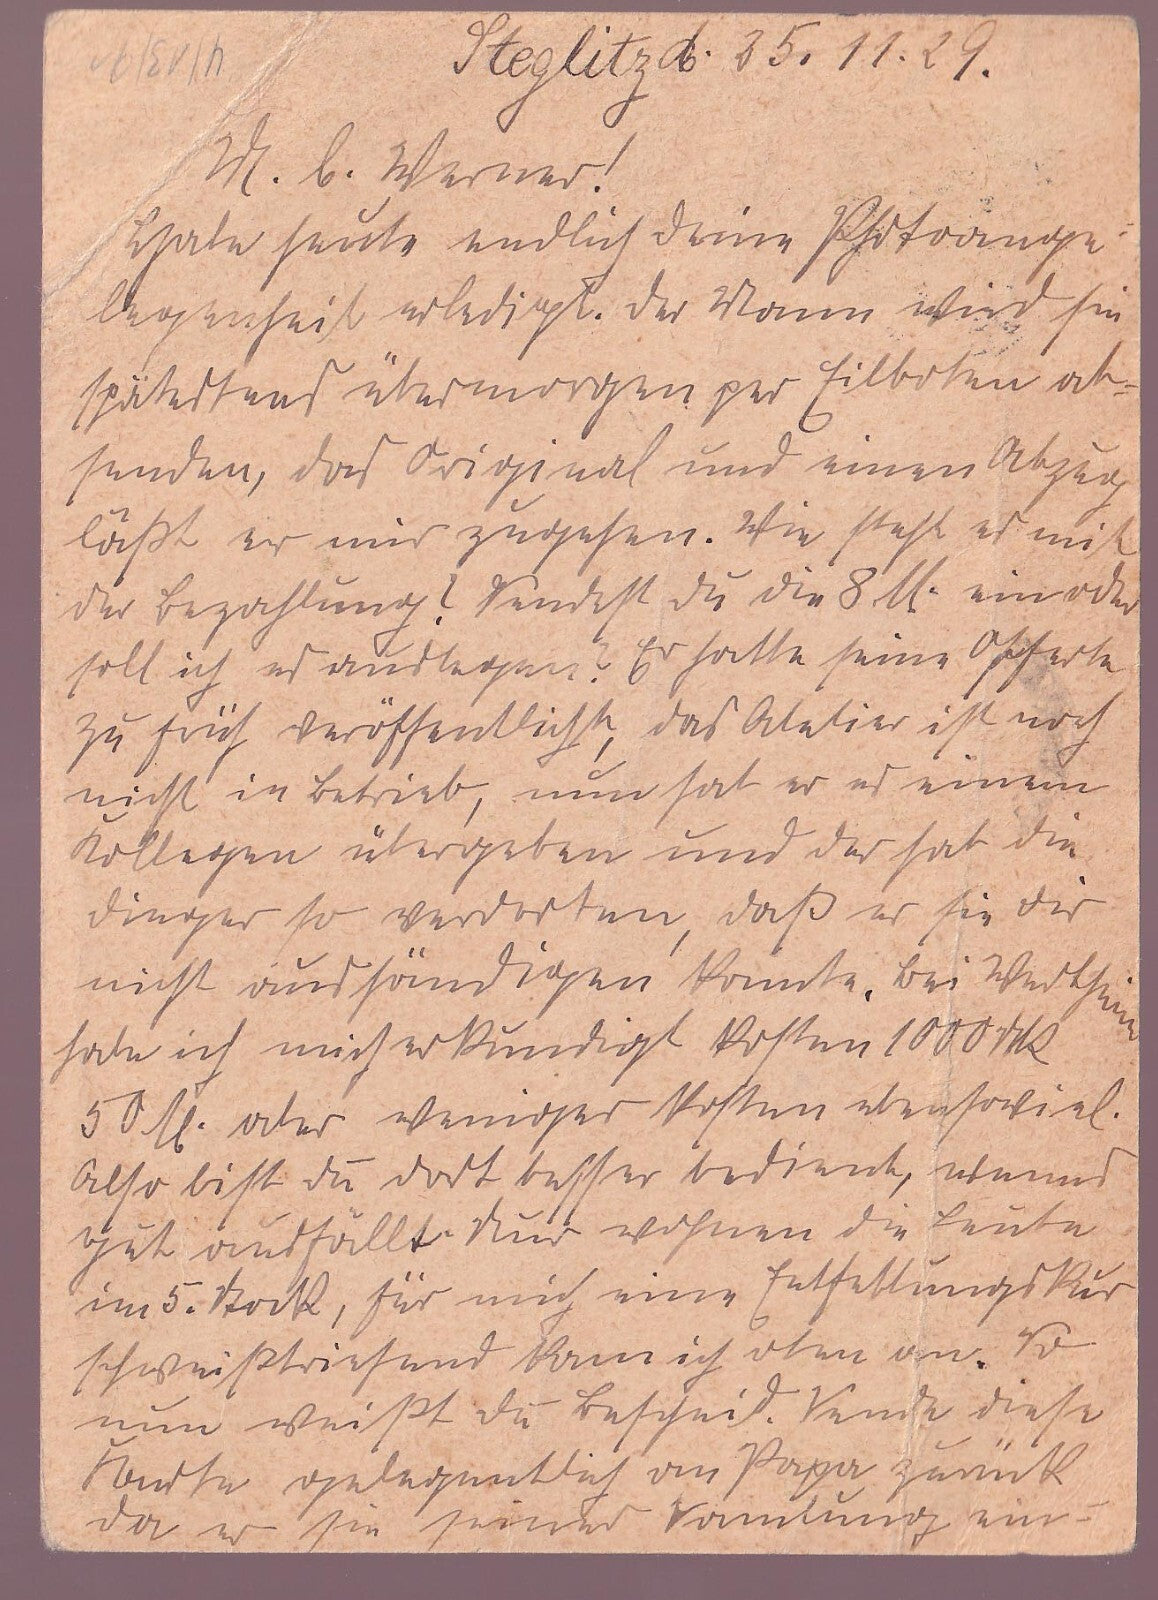 Steglitz d. 25.11.29.
M. l. Werner!
Habe heute endlich deine Photoange-
legenheit erledigt. Der Mann wird sie
spätestens übermorgen per Eilboten ab-
senden, das Original und einen Abzug
läßt er mir zugehen. Wie steht es mit
der Bezahlung? Sendest du die 8 M. ein oder
soll ich es auslegen? Er hatte seine Offerte
zu früh veröffentlicht, das Atelier ist noch
nicht in Betrieb, nun hat er es einem
Kollegen übergeben und der hat die
Dinger so verdorben, daß er sie dir
nicht aushändigen konnte. Bei Wertheim
habe ich mich erkundigt kosten 1000 Stk
50 M. oder weniger kosten ebensoviel.
Also bist du dort besser bedient, wenns
gut ausfällt. Nur wohnen die Leute
im 5. Stock, für mich eine Entfettungskur
schweißtriefend kam ich oben an. So
nun weißt du Bescheid. Sende diese
Karte gelegentlich an Papa zurück
da er sie seiner Samlung ein-